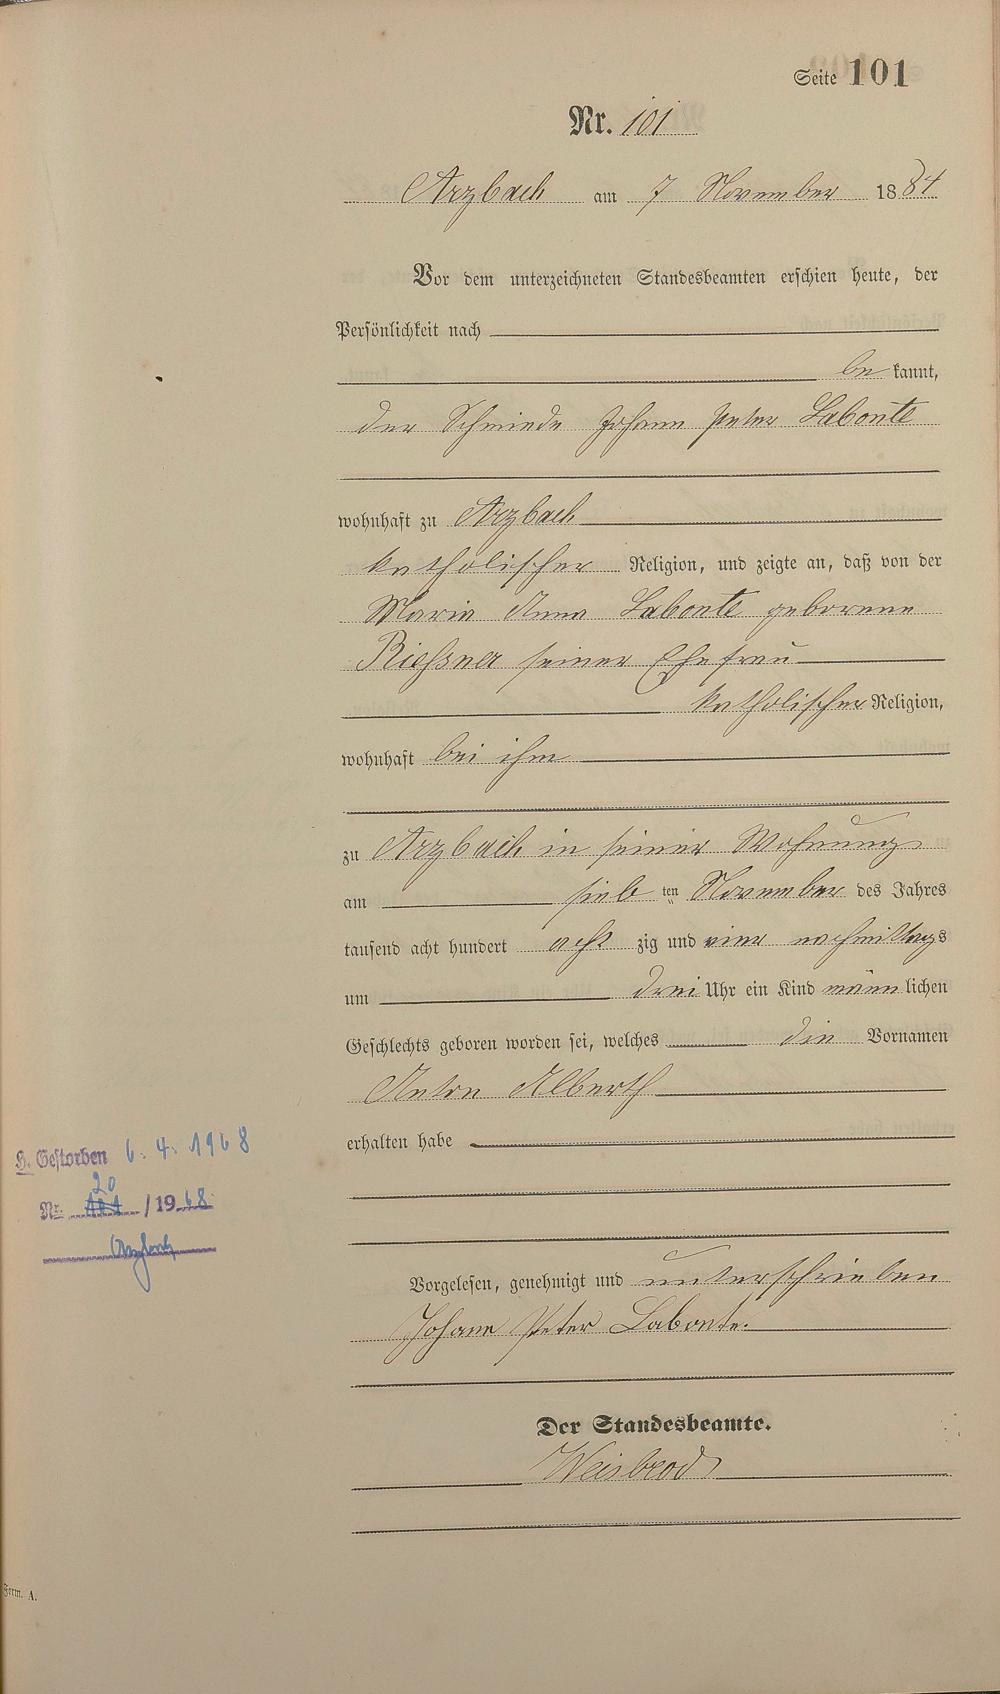 Seite 101
Nr. 101
Arzbach am 7 November 1884
Vor dem unterzeichneten Standesbeamten erschien heute, der
Persönlichkeit nach
be kannt,
der Schmiede Johann Peter Labonte
wohnhaft zu Arzbach
katholischer Religion, und zeigte an, daß von der
Maria Anna Labonte geborene
Riehsner seiner Ehefrau
katholischer Religion,
wohnhaft bei ihm
zu Arzbach in seiner Wohnung
am sieb ten November des Jahres
tausend acht hundert acht zig und vier nachmittags
um drei Uhr ein Kind männlichen
Geschlechts geboren worden sei, welches die Vornamen
Anton Alberth
erhalten habe
H. Gestorben 6. 4. 1968
20
Nr. /1968
Arzbach
Vorgelesen, genehmigt und unterschrieben
Johann Peter Labonte.
Der Standesbeamte.
Weisbrod
Form. A.